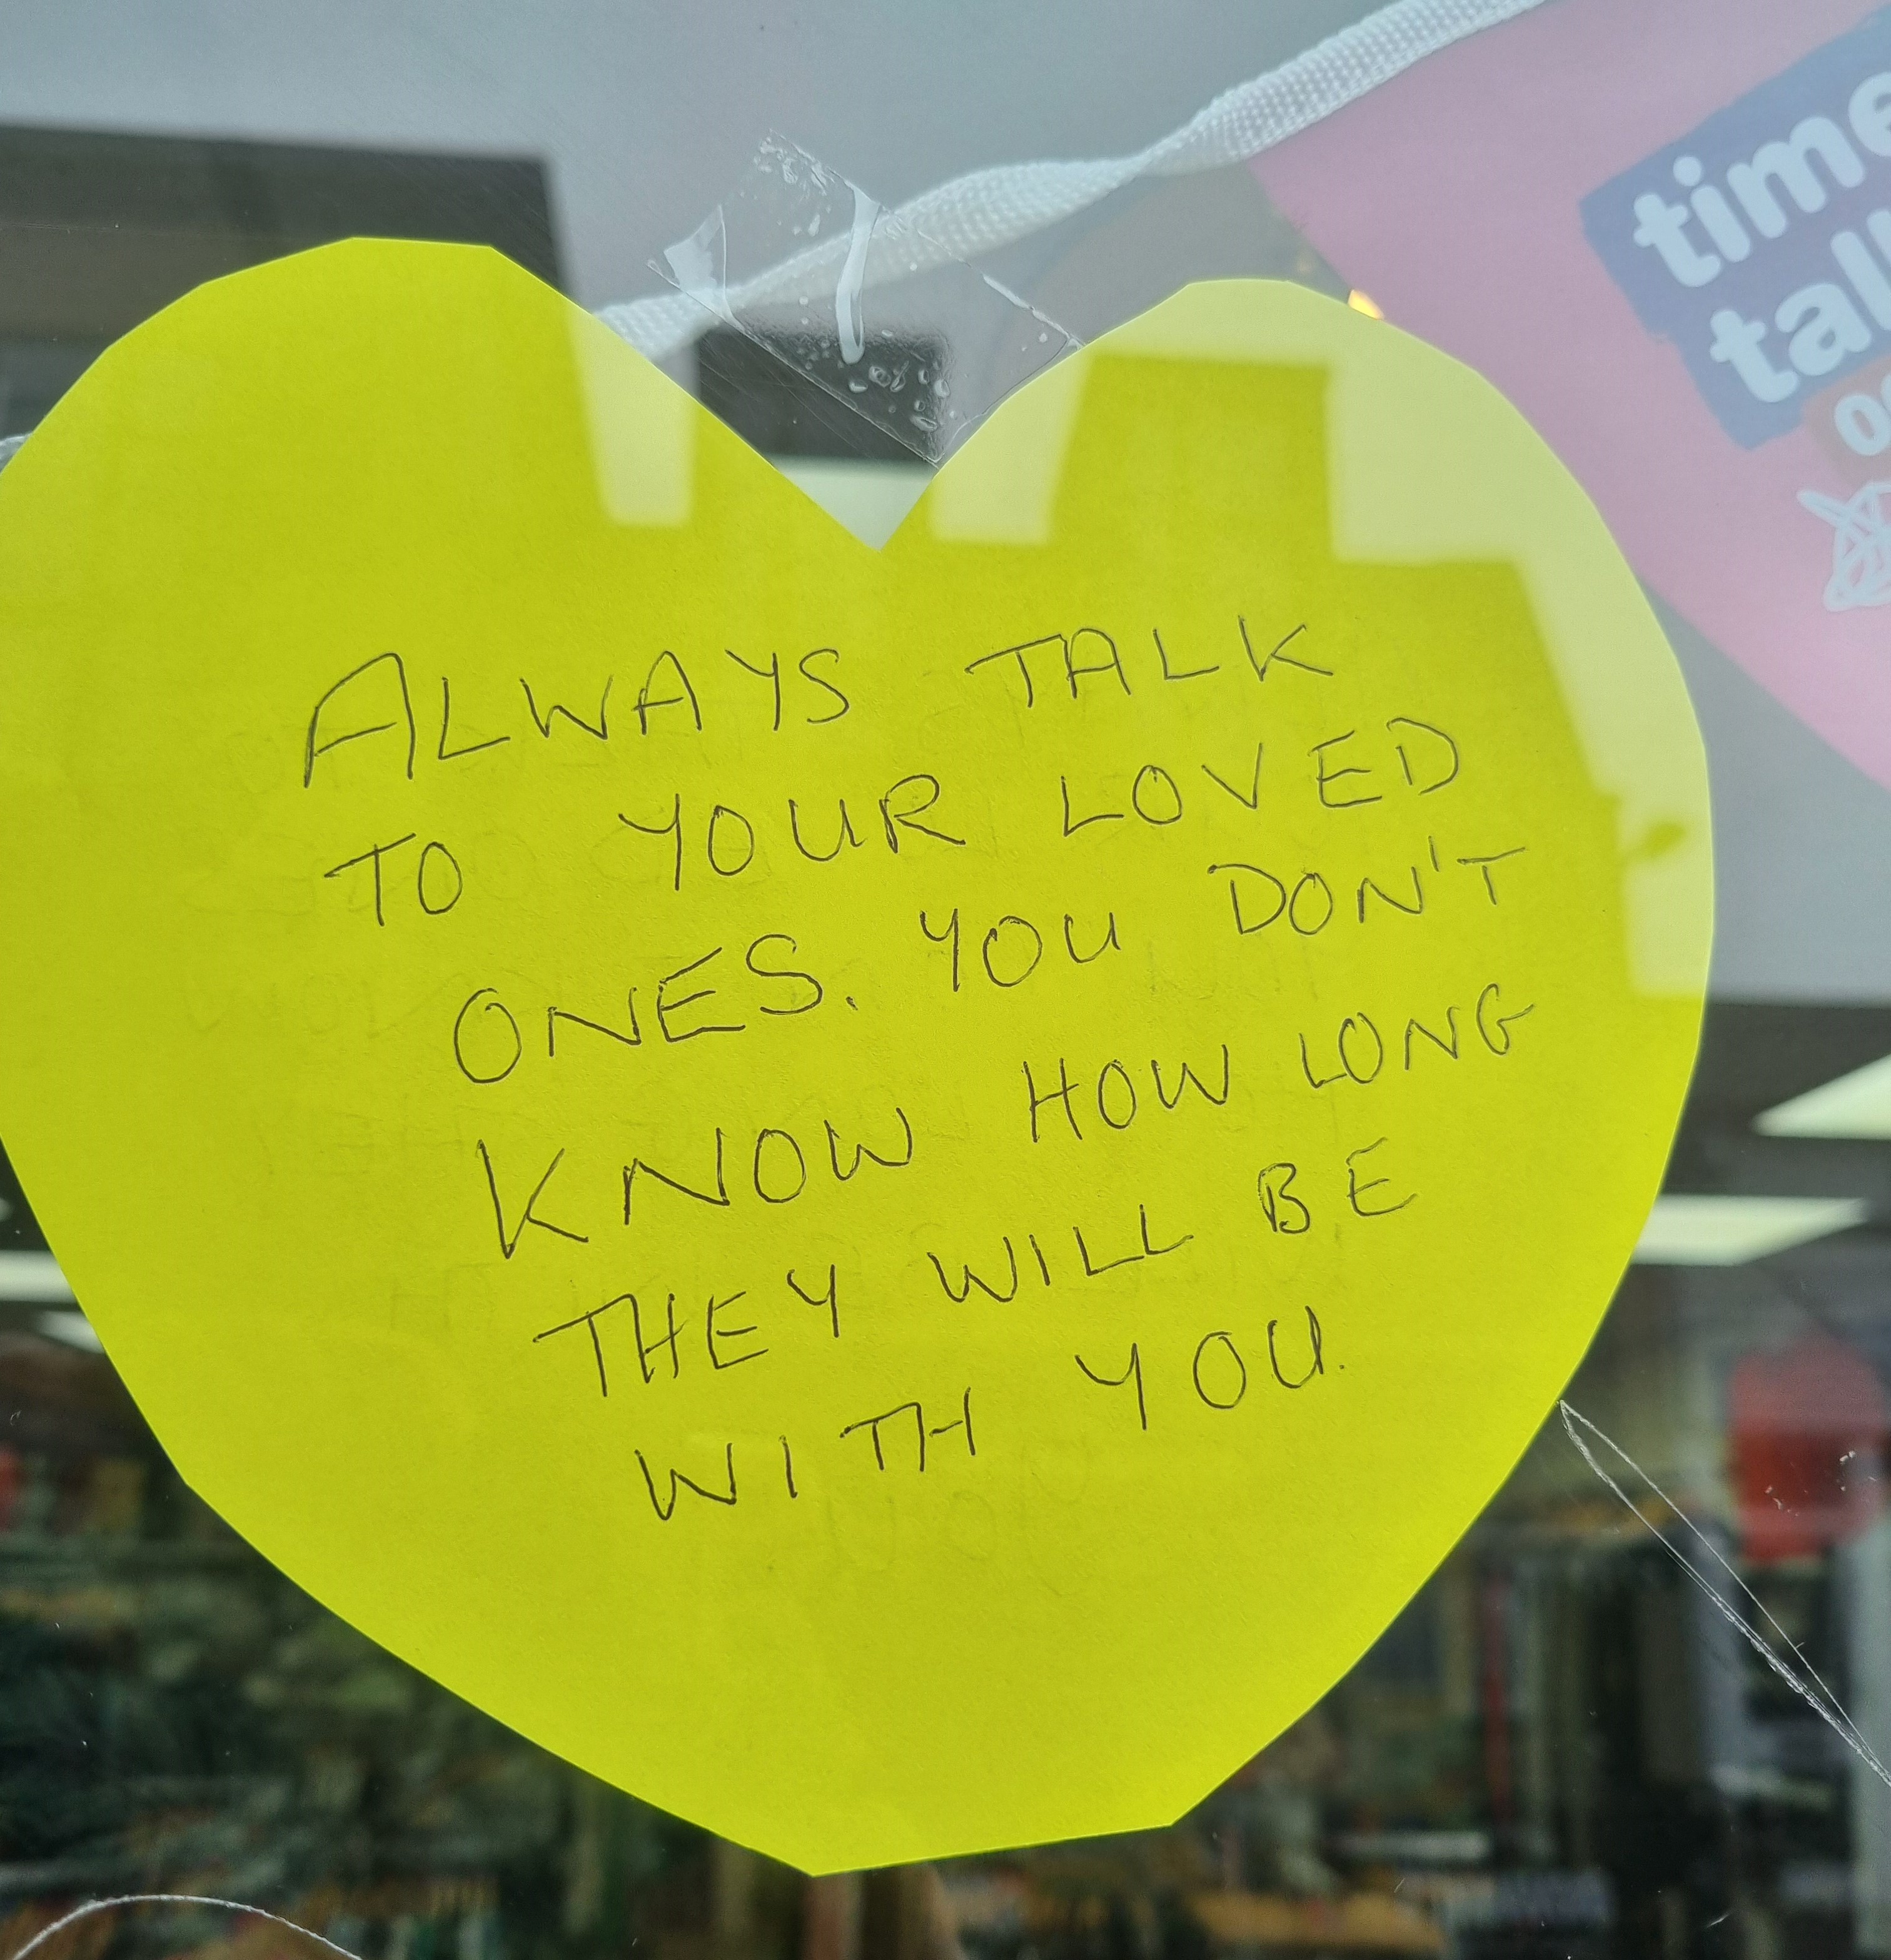 ALWAYS TALK
TO YOUR LOVED
ONES. YOU DON'T
KNOW HOW LONG
THEY WILL BE
WITH YOU.
time